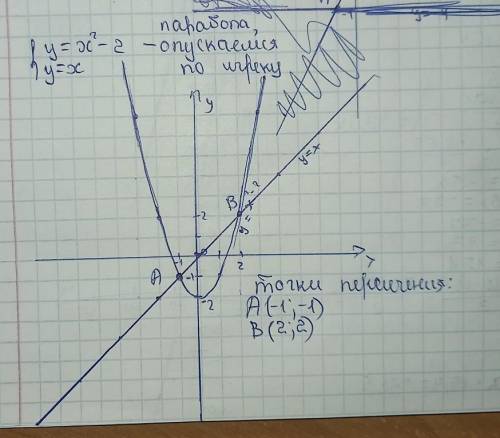 парабола,
{ y = x² - 2 - опускаемся
y = x по игреку
y
y=x
B
y = x² - 2
2
-1
2
A
-1
-2
точки пересичения:
A(-1; -1)
B(2; 2)